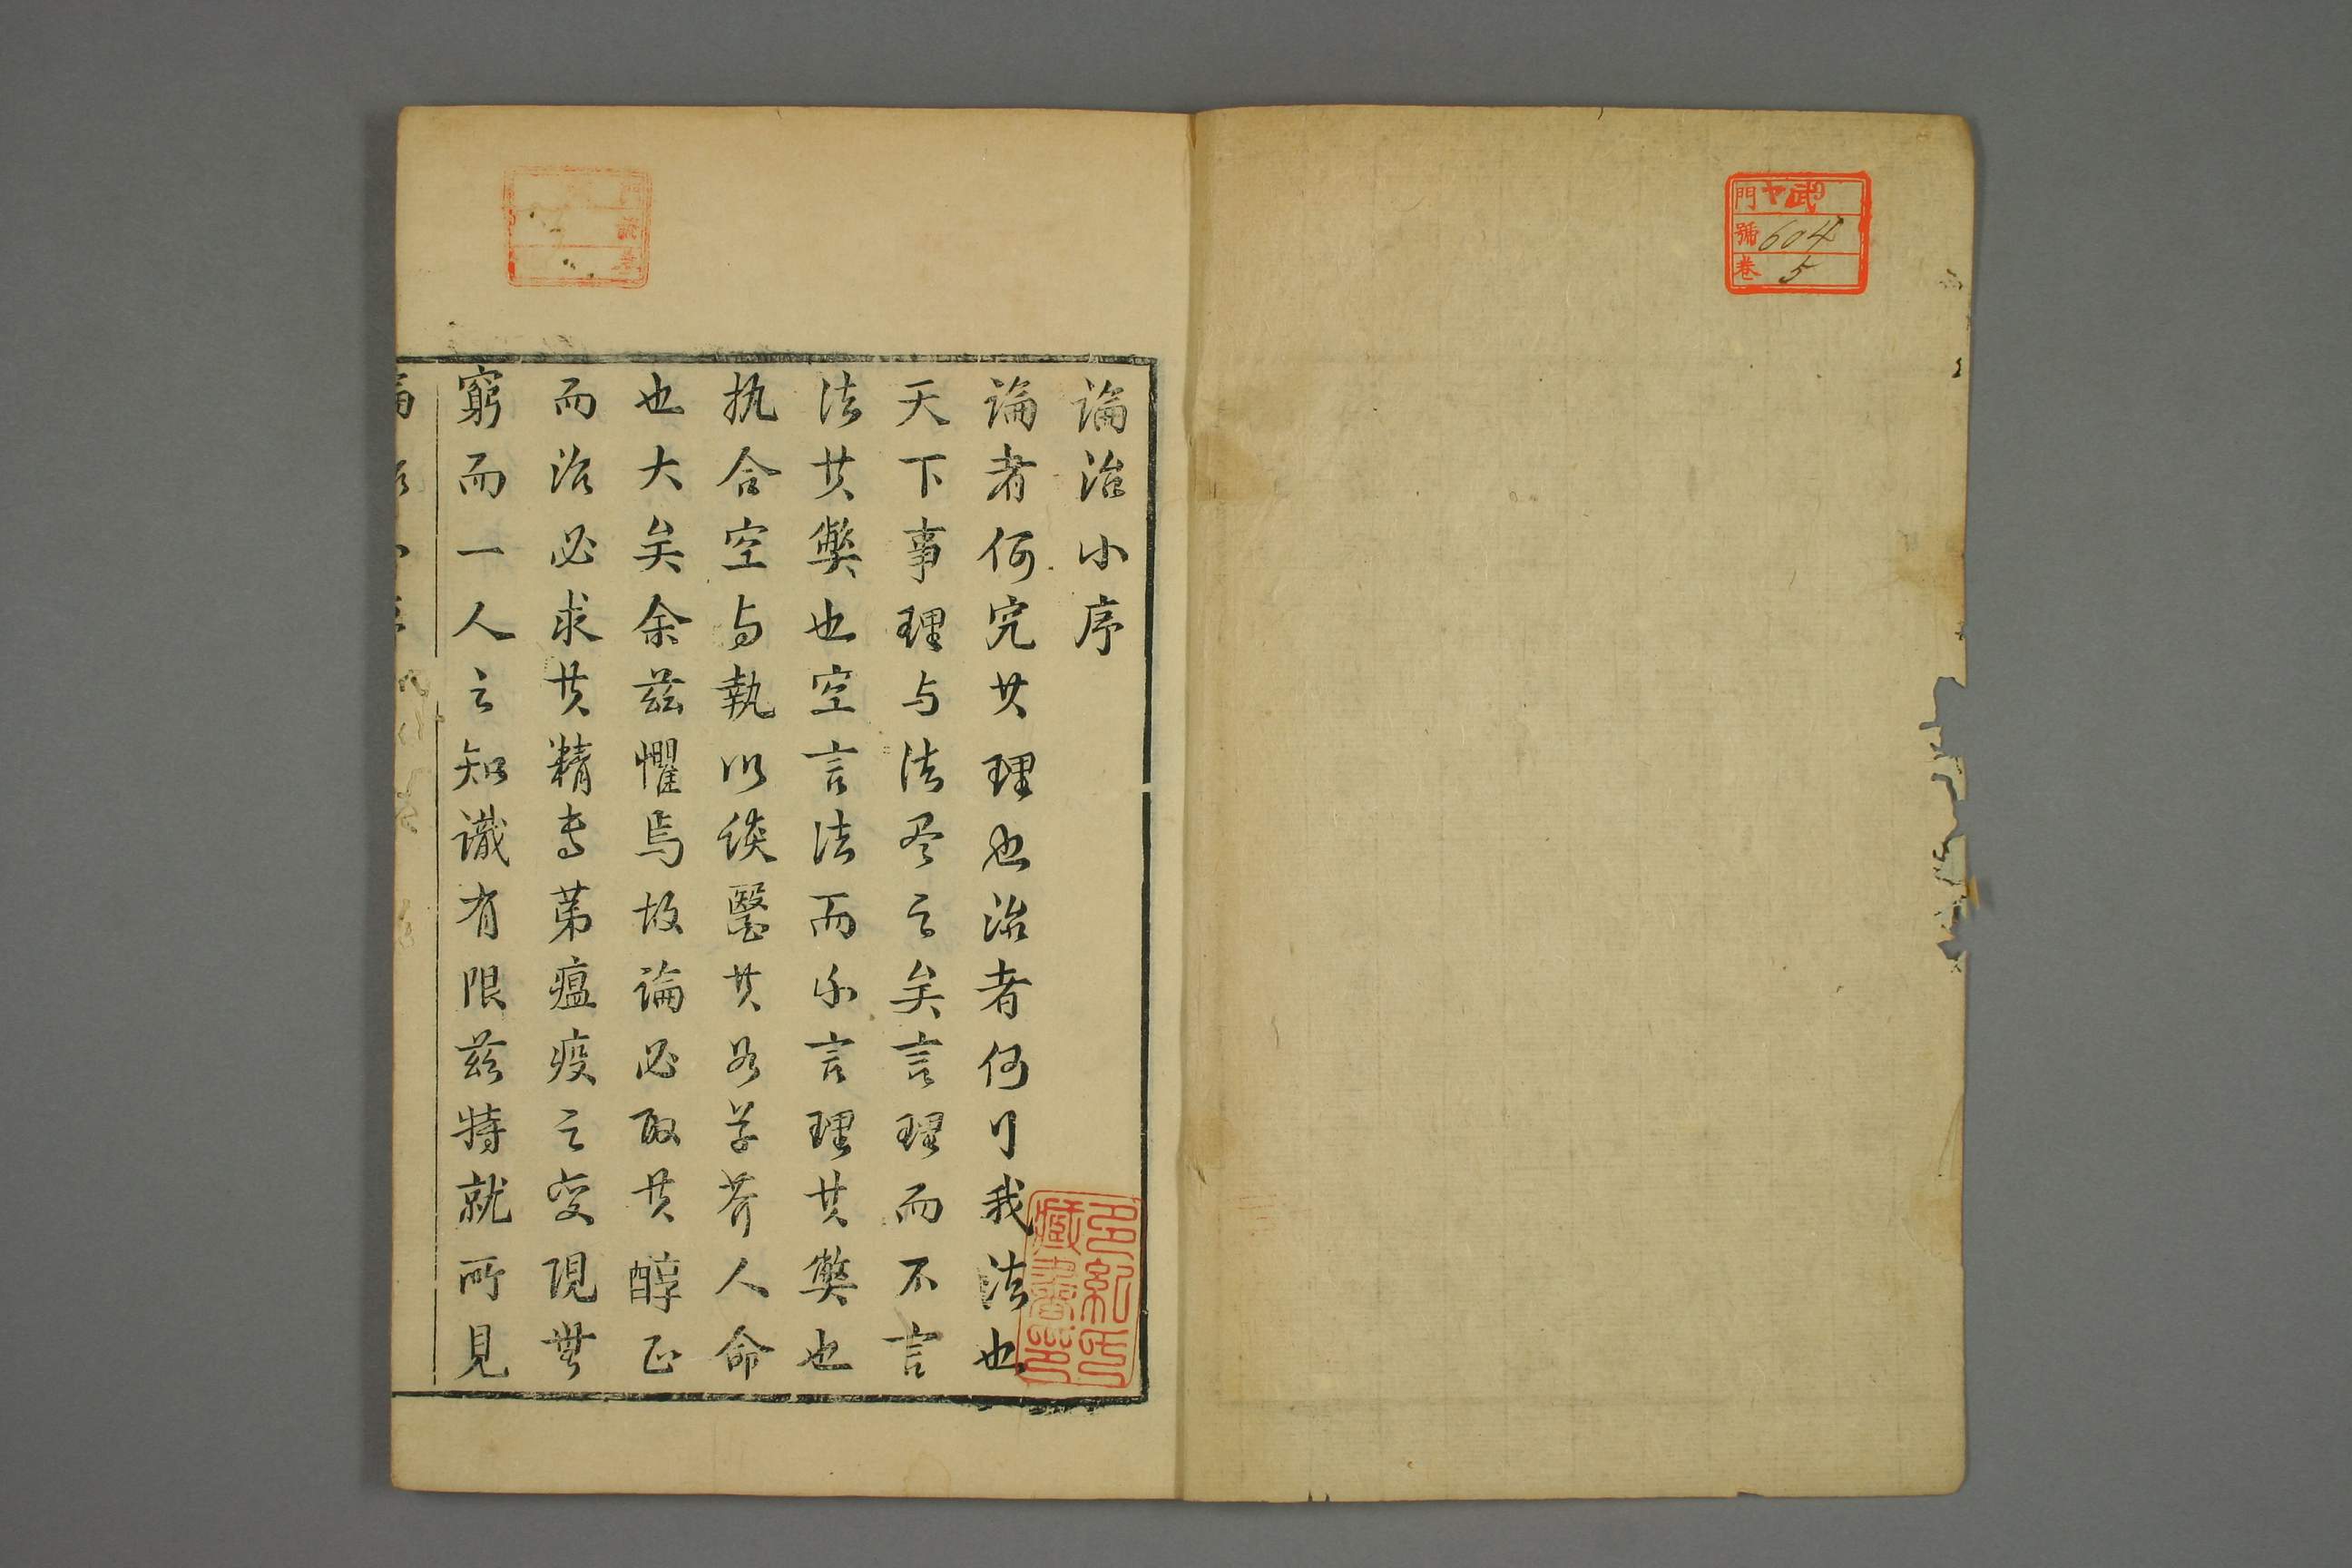 門 ヤ武
號 604
卷 5
論治小序
論者何究其理也治者何行我法也
天下事理与法尽之矣言理而不言
法其弊也空言法而不言理其弊也
执合空与執以谈醫其为草芥人命
也大矣余茲懼焉故論必取其醇正
而治必求其精专第瘟疫之变現無
窮而一人之知識有限茲特就所見
多紀氏
藏書印